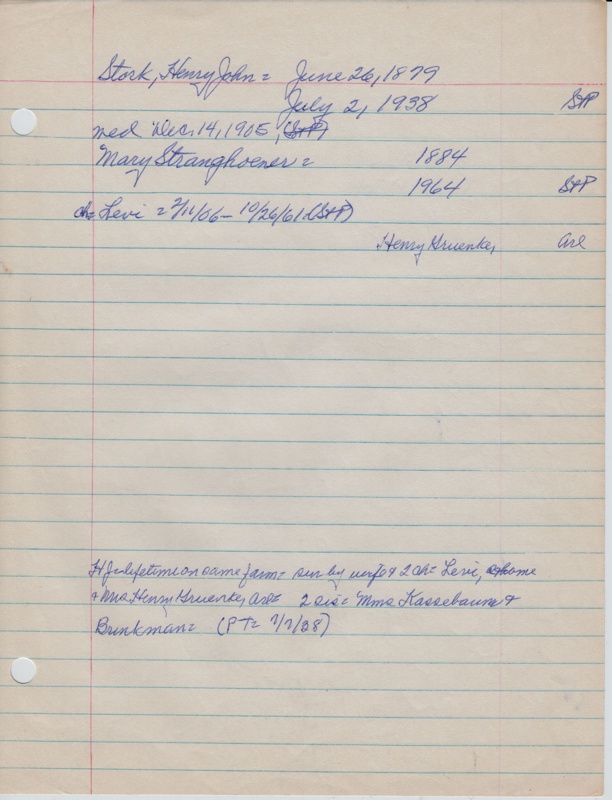 Stork, Henry John = June 26, 1879
July 2, 1938 StP
wed Dec. 14, 1905, (StP)
Mary Stranghoener = 1884
1964 StP
ch = Levi = 2/11/06 - 10/26/61 (StP)
Henry Gruenke, Arl
HJ = lifetime on same farm = sur by wife & 2 ch = Levi, @home
& Mrs Henry Gruenke, Arl = 2 sis = Mmes Kassebaum &
Brinkman = (PT = 7/7/38)